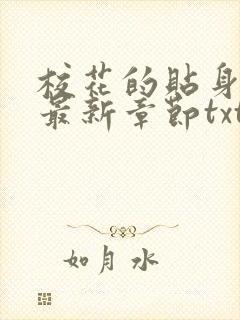 校花的貼身
最新章節txt
如月水